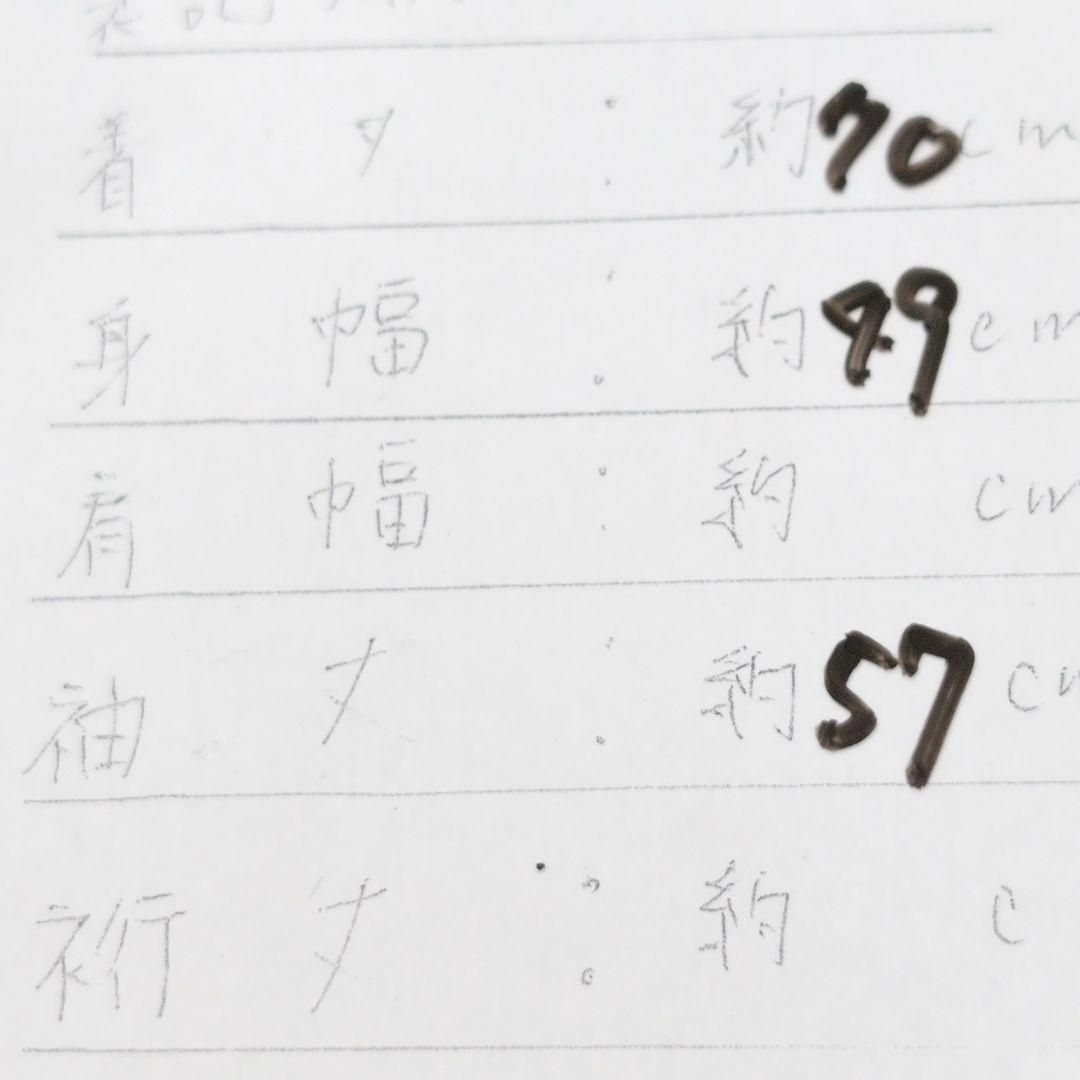 着 丈 : 約70cm
身 幅 : 約49cm
肩 幅 : 約 cm
袖 丈 : 約57cm
裄 丈 : 約 c